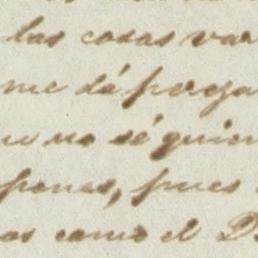 las cosas var
me dá porga
ue no sé quien
pones, pues
os como el D